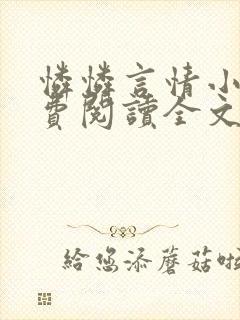 憐憐言情小
費閱讀全文
給您添蘑菇啦